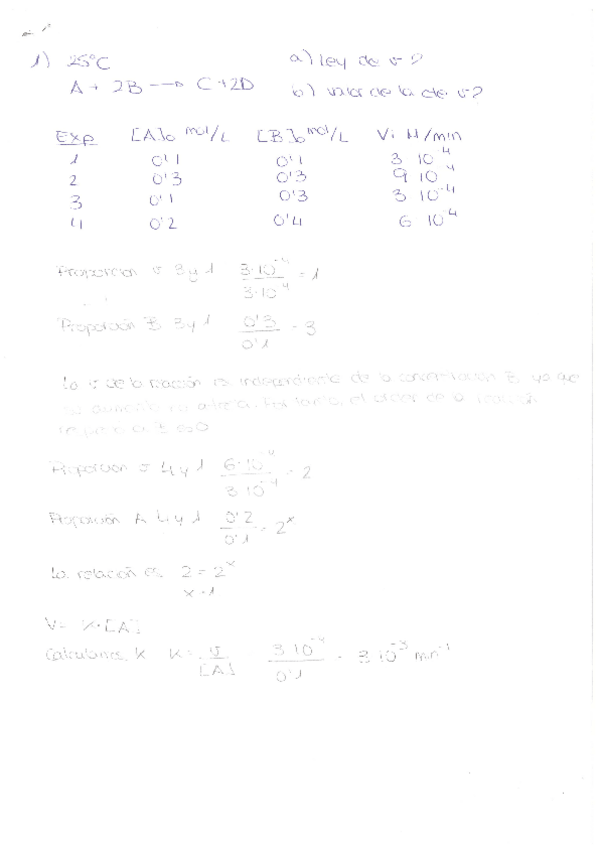 1) 25ºC
a) ley de v?
A + 2B → C + 2D
b) valor de la cte v?
Exp [A]o mol/L [B]o mol/L Vi M/min
1 0'1 0'1 3 10^-4
2 0'3 0'3 9 10^-4
3 0'1 0'3 3 10^-4
4 0'2 0'4 6 10^-4
Proporción v 3 y 1 3·10^-4 / 3·10^-4 = 1
Proporción B 3 y 1 0'3 / 0'1 = 3
La v de la reacción es independiente de la concentración B ya que
no aumenta ni altera. Por tanto, el orden de la reacción
respecto a B es 0
Proporción v 4 y 1 6·10^-4 / 3·10^-4 = 2
Proporción A 4 y 1 0'2 / 0'1 = 2^x
La relación es 2 = 2^x
x = 1
V = K·[A]
Calculamos K K = v / [A] = 3·10^-4 / 0'1 = 3·10^-3 min^-1